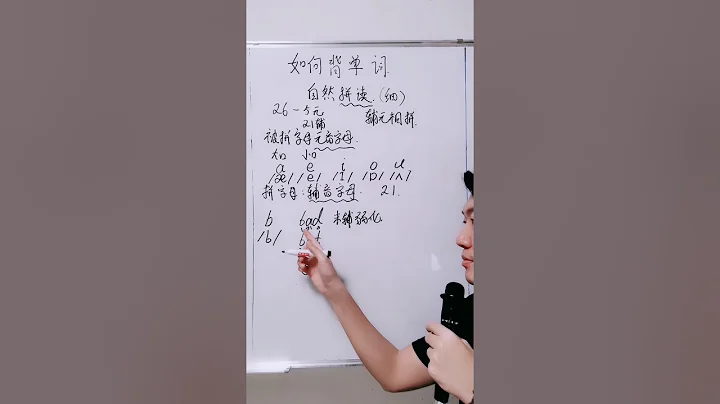 如何背单词
自然拼读（细）
26－5元 辅元相拼
21辅
被拼字母元音字母.
大口 小口
a e i o u
/æ/ /e/ /ɪ/ /ɒ/ /ʌ/
拼字母:辅音字母. 21.
b bad 末辅弱化
/b/